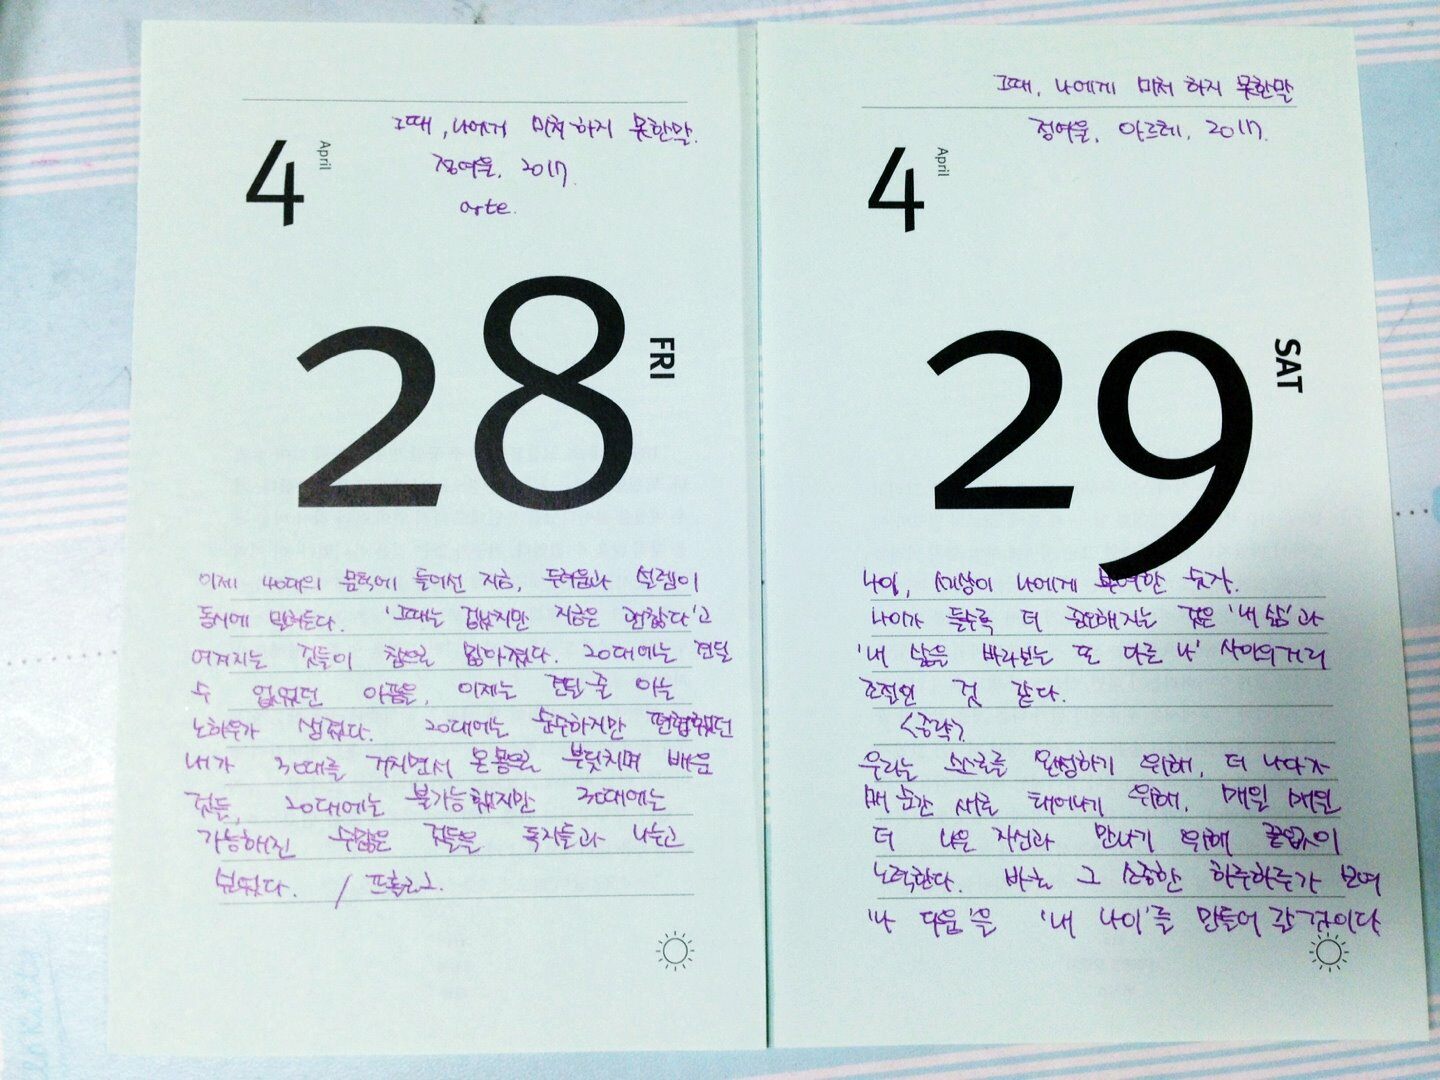 그때, 나에게 미처 하지 못한말.
정여울, 2017.
arte.
4
April
28
FRI
이제 40대의 문턱에 들어선 지금, 두려움과 설렘이
동시에 밀려든다. '그때는 힘났지만 지금은 괜찮다'고
여겨지는 것들이 참으로 많아졌다. 20대에는 견딜
수 없었던 아픔을, 이제는 견딜 줄 아는
노하우가 생겼다. 20대에는 순수하지만 편협했던
내가 30대를 거치면서 온몸으로 부딪치며 배운
것들, 20대에는 불가능했지만 30대에는
가능해진 수많은 것들을 독자들과 나누고
싶었다. / 프롤로그.
그때, 나에게 미처 하지 못한말
정여울, 아르테, 2017.
4
April
29
SAT
나이, 세상이 나에게 부여한 숫자.
나이가 들수록 더 중요해지는 것은 '내 삶'과
'내 삶을 바라보는 또 다른 나' 사이의거리
조절인 것 같다.
<중략>
우리는 스스로를 완성하기 위해, 더 나아가
매 순간 새로 태어나기 위해, 매일 매일
더 나은 자신과 만나기 위해 끝없이
노력한다. 바로 그 소중한 하루하루가 모여
'나 다움'을 '내 나이'를 만들어 갈 것이다